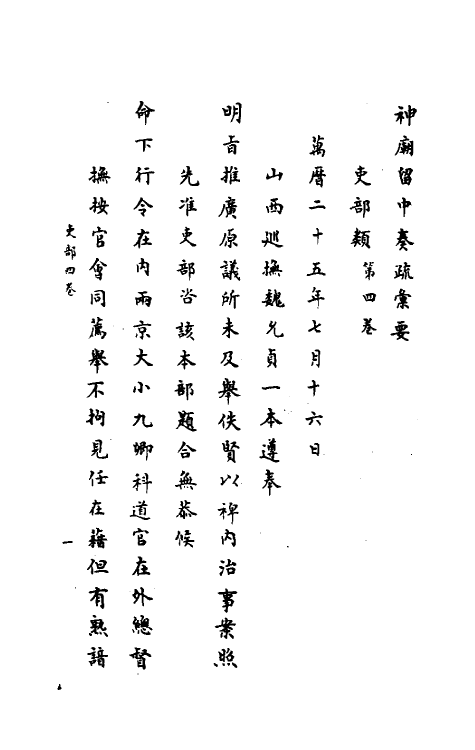 神廟留中奏疏彙要
吏部類第四卷
萬曆二十五年七月十六日
山西巡撫魏允貞一本遵奉
明旨推廣原議所未及舉佚賢以裨內治事案照
先准吏部咨該本部題合無恭候
命下行令在內兩京大小九卿科道官在外總督
撫按官會同薦舉不拘見任在籍但有熟諳
吏部四卷
一